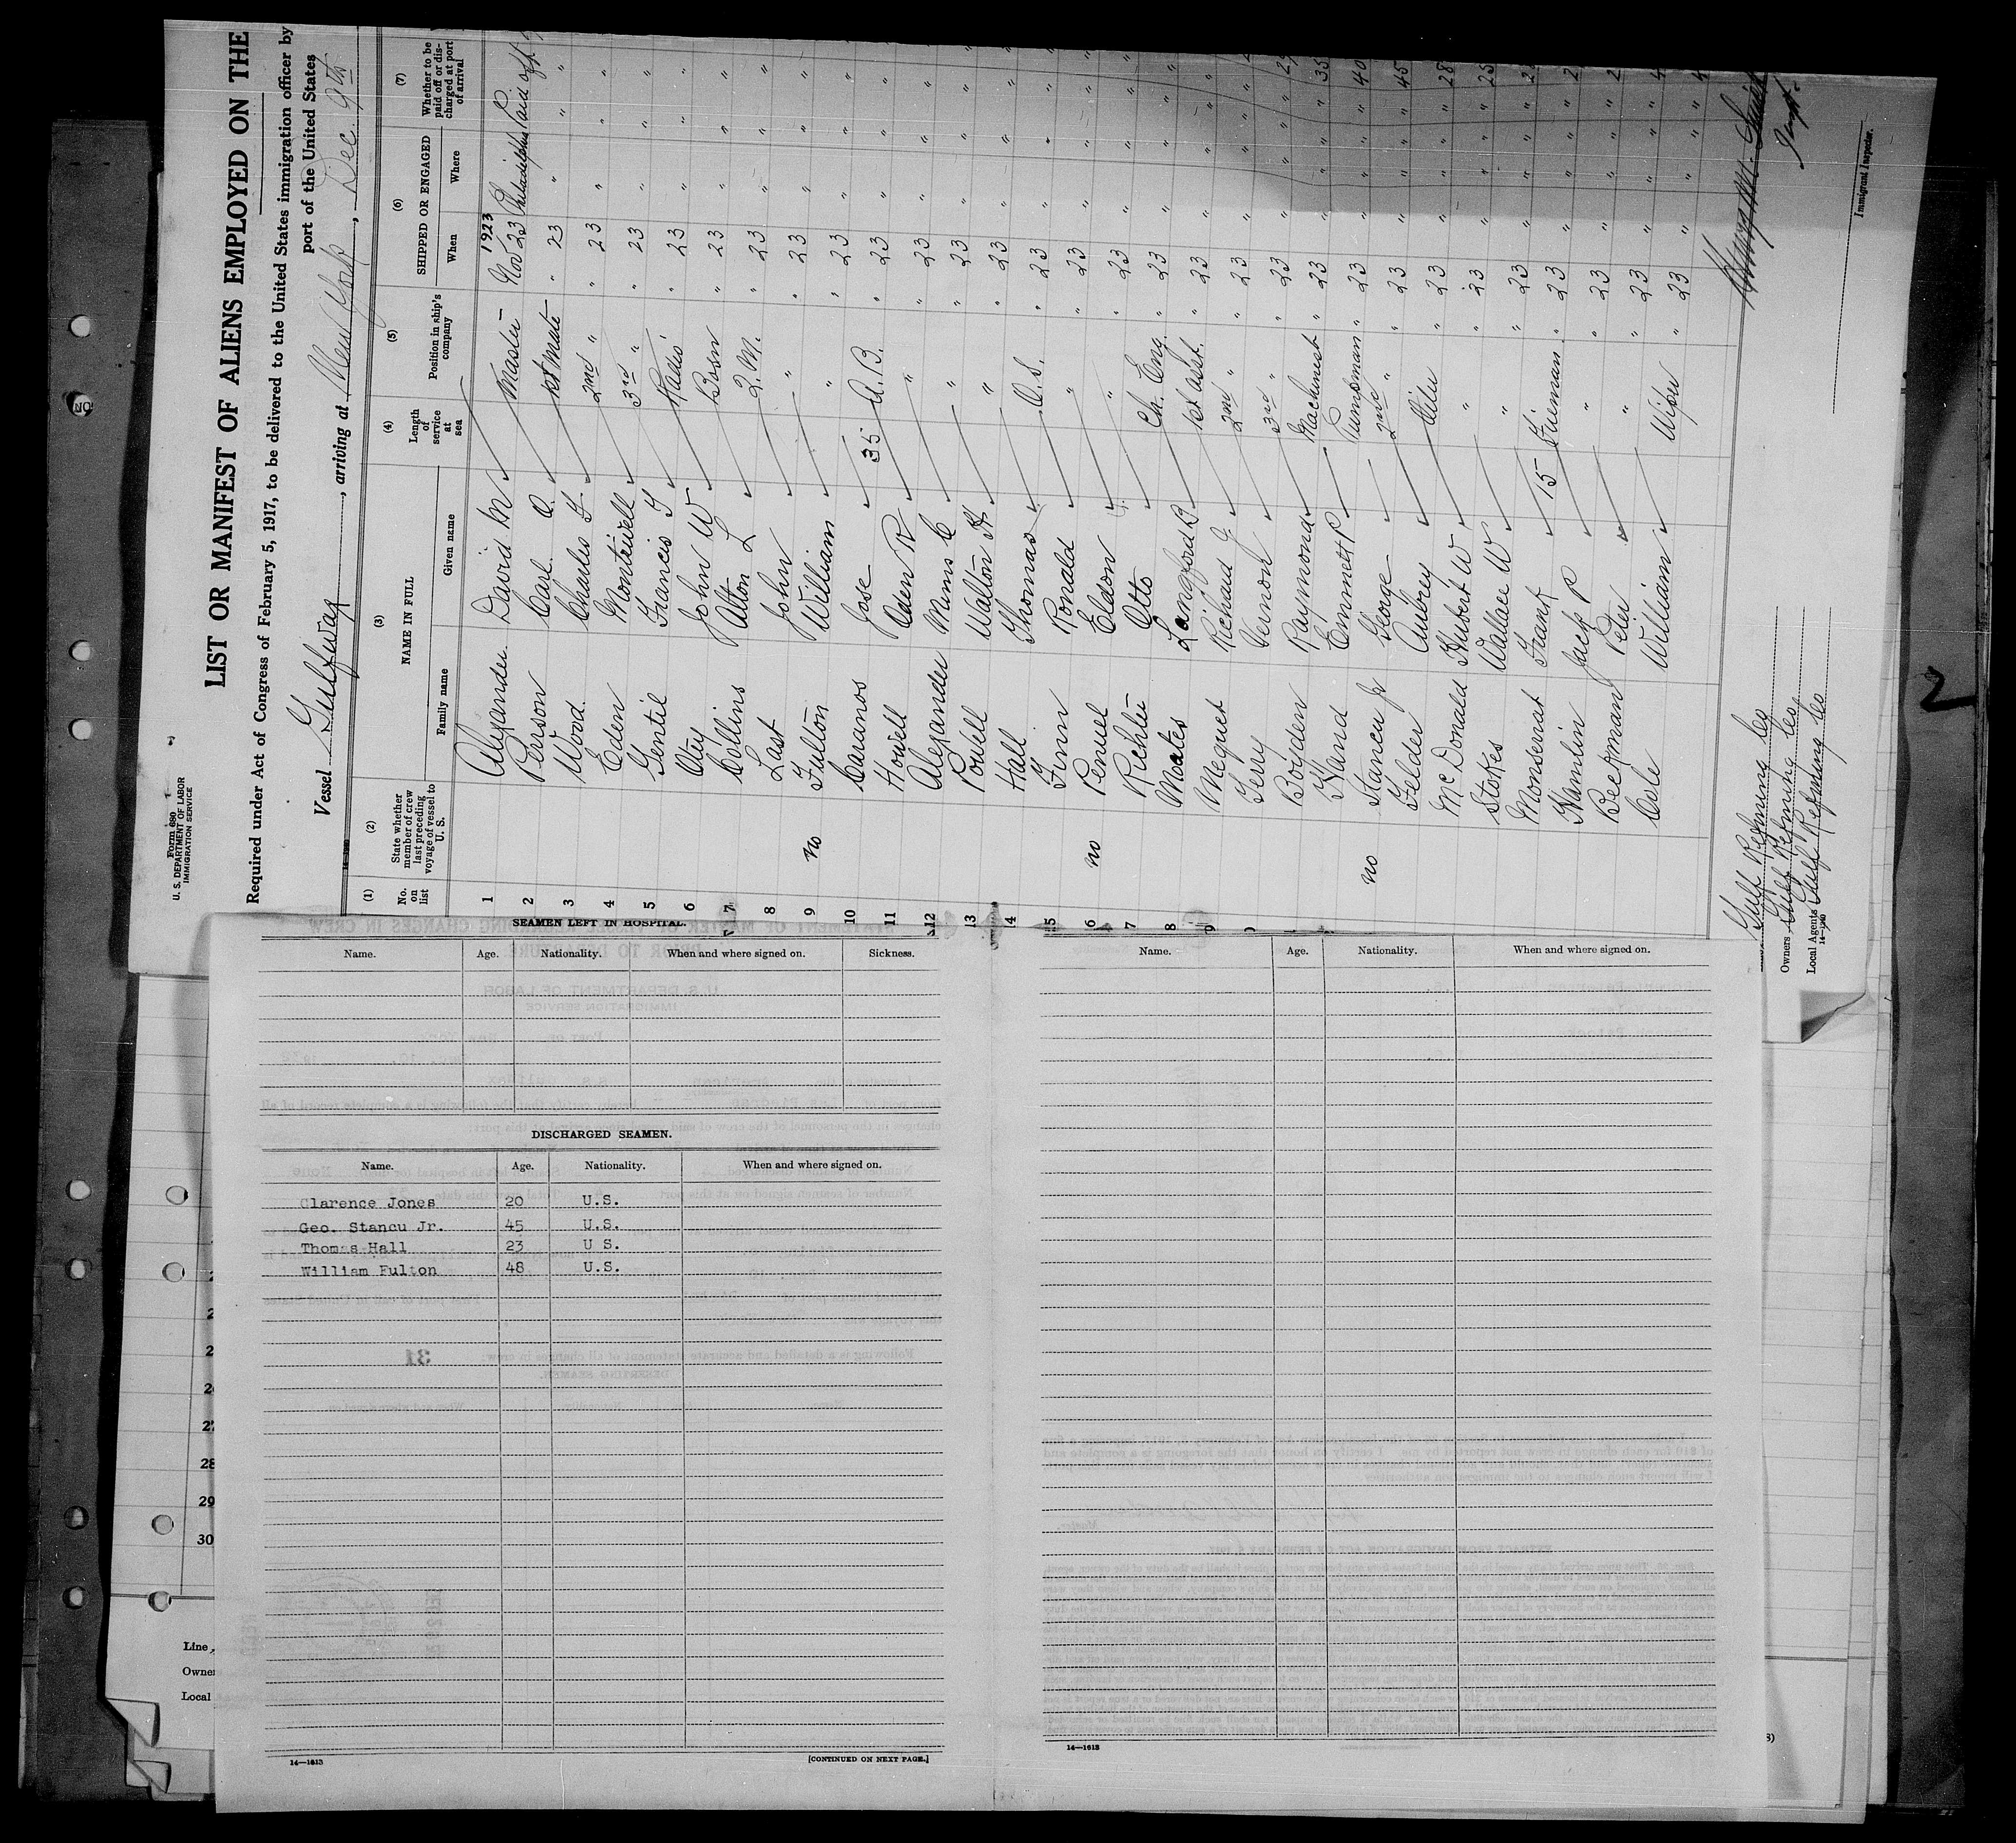 Form 680
U. S. DEPARTMENT OF LABOR
IMMIGRATION SERVICE
LIST OR MANIFEST OF ALIENS EMPLOYED ON THE
Required under Act of Congress of February 5, 1917, to be delivered to the United States immigration officer by
port of the United States
Vessel Gulfwax, arriving at New York, Dec. 9th
(1) (2) (3) (4) (5) (6) (7)
No. on list
State whether member of crew last preceding voyage of vessel to U. S.
NAME IN FULL
Family name Given name
Length of service at sea
Position in ship's company
SHIPPED OR ENGAGED
When Where
Whether to be paid off or discharged at port of arrival
1923
1 Alexander David M Master Nov 23 Philadelphia Paid off
2 Person Carl O. 1st Mate " 23 " " "
3 Wood Charles F 2nd " " 23 " " "
4 Eden Montiwell 3rd " " 23 " " "
5 Gentil Francis F Radio " 23 " " "
6 Otey John W Bosn " 23 " " "
7 Collins Alton L Q.M. " 23 " " "
8 Last John " " 23 " " "
9 no Fulton William " " 23 " " "
10 Caranos Jose 35 A.B. " 23 " " "
11 Howell Oden R " " 23 " " "
12 Alexander Mims C " " 23 " " "
13 Powell Walton H " " 23 " " "
14 Hall Thomas O.S. " 23 " " "
15 Finn Ronald " " 23 " " "
6 no Penuel Eldon " " 23 " " "
7 Richter Otto Ch. Eng. " 23 " " "
8 Moates Langford B 1st Asst. " 23 " " "
9 Meguet Richard J 2nd " " 23 " " "
Terry Vernon 3rd " " 23 " " "
Borden Raymond Machinest " 23 " " " 35
Hand Emmett P Pumpman " 23 " " " 40
no Stancu Jr George 2nd " " 23 " " " 45
Felder Aubrey Oiler " 23 " " " 28
McDonald Hubert W " " 23 " " " 25
Stokes Wallace W " " 23 " " "
Monserrat Frank 15 Fireman " 23 " " "
Hamlin Jack P " " 23 " " "
Beekman Peter " " 23 " " "
Cole William Wiper " 23 " " "
Gulf Refining Co
Owners Gulf Refining Co
Local Agents Gulf Refining Co
14—1240
Immigrant Inspector.
2
SEAMEN LEFT IN HOSPITAL.
Name. Age. Nationality. When and where signed on. Sickness.
DISCHARGED SEAMEN.
Name. Age. Nationality. When and where signed on.
Clarence Jones 20 U.S.
Geo. Stancu Jr. 45 U.S.
Thomas Hall 23 U S.
William Fulton 48 U.S.
14—1613
[CONTINUED ON NEXT PAGE.]
Name. Age. Nationality. When and where signed on.
14—1613
28
29
30
Line
Owner
Local